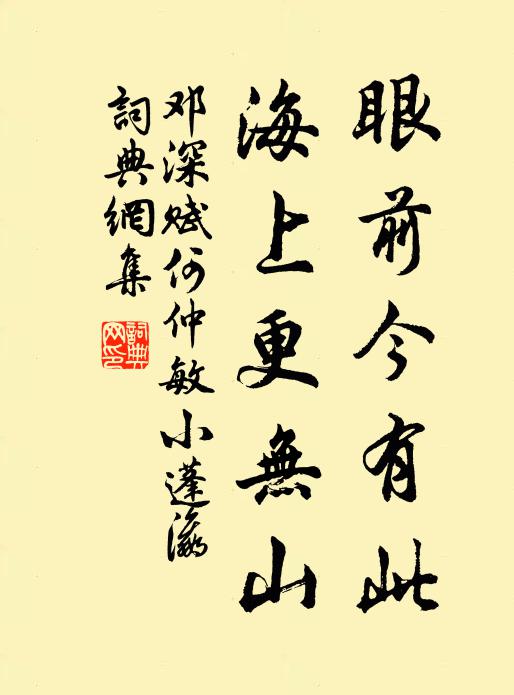 眼前今有此
海上更無山
邓深赋何仲敏小蓬瀛
詞典網集
詞典網印